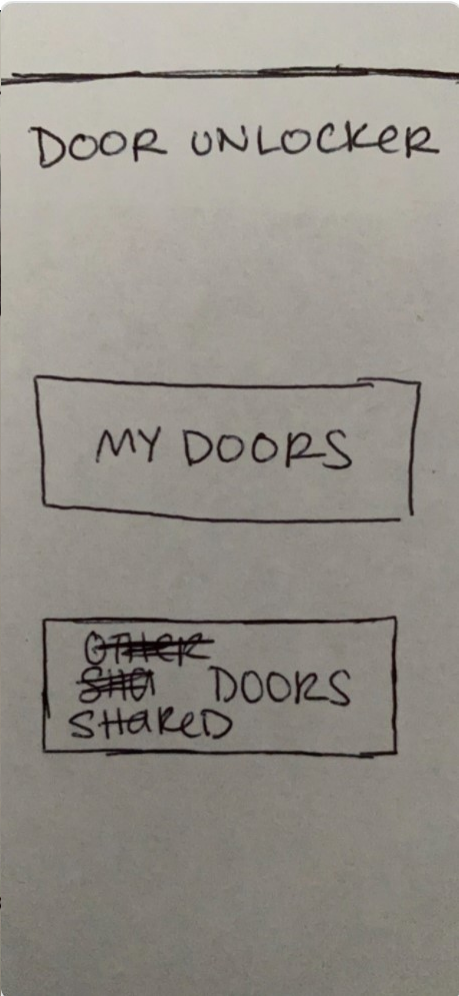 DOOR UNLOCKER
MY DOORS
OTHER
SHA DOORS
SHARED